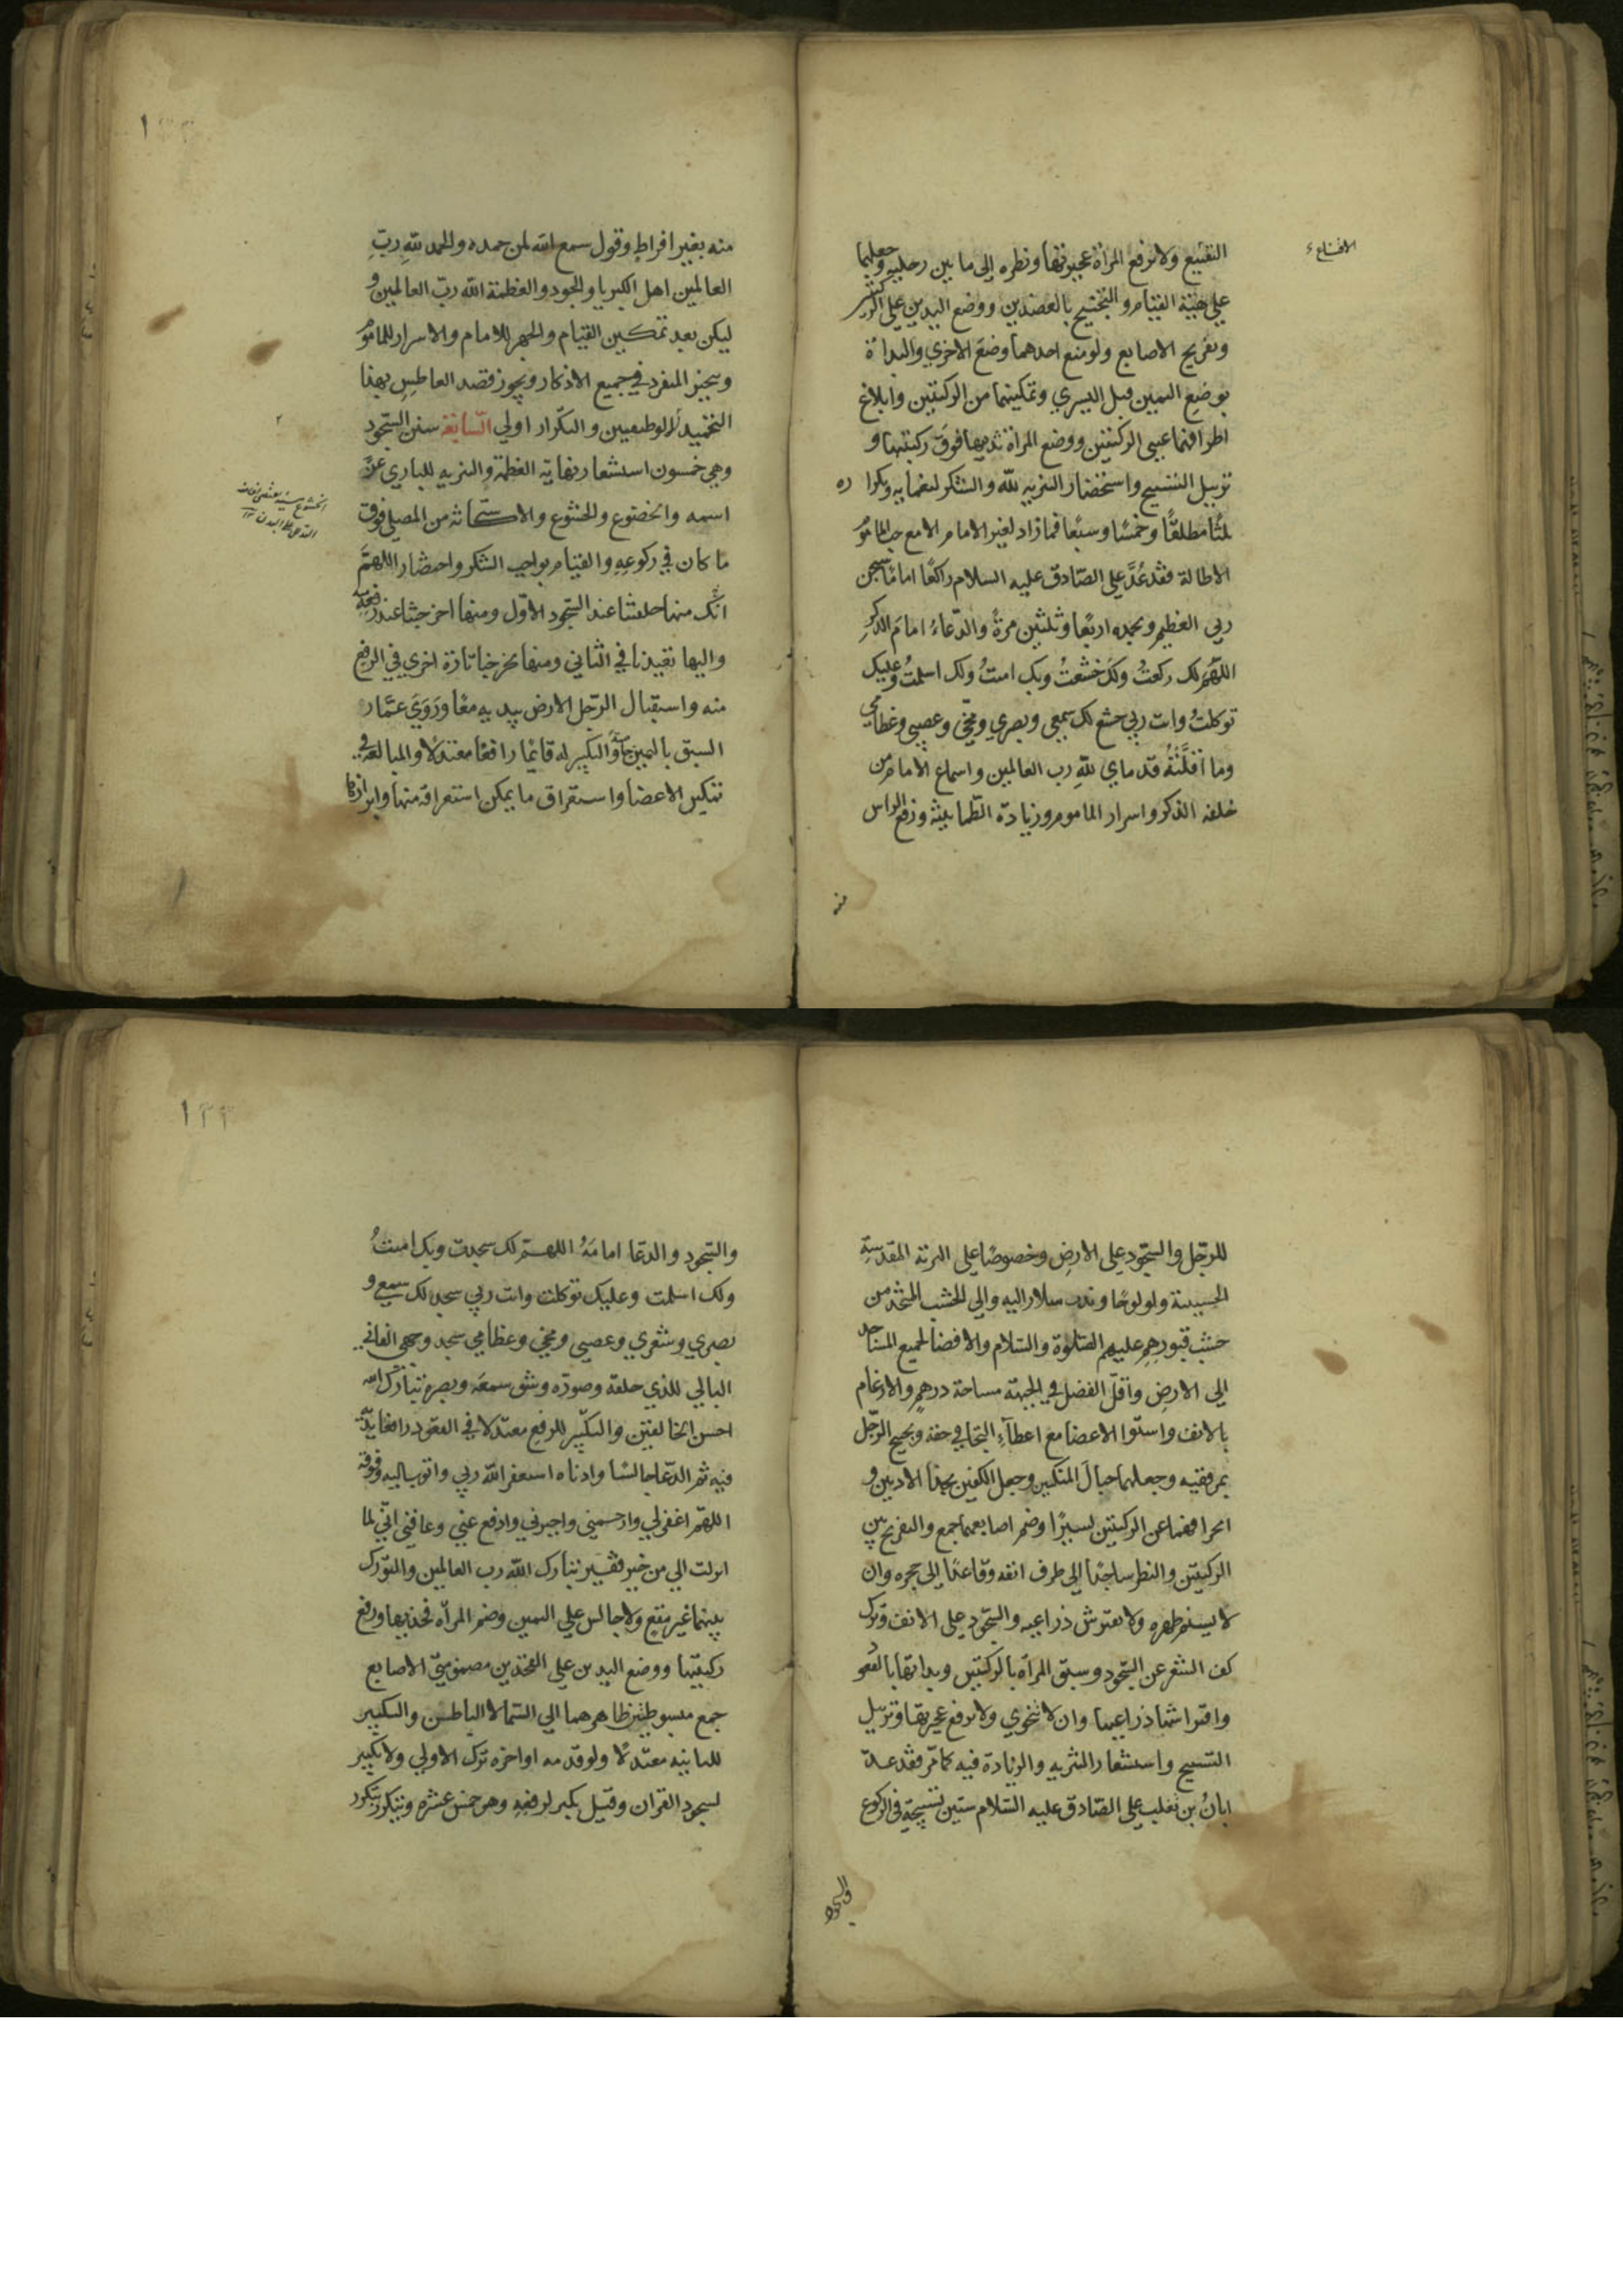 الاقناع ء
التقنيع ولا ترفع المرأة عجيزتها ونظره إلى ما بين رجليه وجعلهما
على هيئة القيام والتجنيح بالعضدين ووضع اليدين على الركبتين
وتفريج الاصابع ولو منع احدهما وضع الاخرى والبدأة
بوضع اليمين قبل اليسرى وتمكينهما من الركبتين وابلاغ
اطرافهما عيني الركبتين ووضع المرأة يديها فوق ركبتيها و
ترتيل التسبيح واستحضار التنزيه لله والشكر لنعمايه وتكراره
ثلثا مطلقًا وخمسًا وسبعًا فما زاد لغير الامام الا مع حب الماموم
الاطالة فقد عُدَّ على الصّادق عليه السلام راكعًا امامًا سبحن
ربي العظيم وبحمده اربعًا وثلثين مرةً والدّعاءُ امامَ الذكرِ
اللهّم لك ركعتُ ولك خشعتُ وبك امنتُ ولك اسلمتُ وعليك
توكلتُ وانت ربي خشع لك سمعي وبصري ومخّي وعصبي وعظامي
وما اقلَّتْهُ قدماي للهِ رب العالمين واسماع الامام من
خلفه الذكر واسرار الماموم وزيادة الطّمانينة ورفع الراس
منه
منه بغير افراطٍ وقول سمع الله لمن حمده والحمد للهِ ربِّ
العالمين اهل الكبريا والجود والعظمة الله ربّ العالمين و
ليكن بعد تمكين القيام والجهر للامام والاسرار للماموم
ويتخير المنفرد في جميع الاذكار ويجوز قصد العاطسِ بهذا
التحميد الوظيفتين والتكرار اولى السّابعة سنن السّجود
وهي خمسون استشعار نهاية العظمة والتنزيه للباري عزّ
اسمه والخضوع والخشوع والاستكانة من المصلي فوق
ما كان في ركوعِهِ والقيام بواجب الشكر واحضار اللهمَّ
انّك منها خلقتنا عند السّجود الاوّل ومنها اخرجتنا عند رفعِهِ
واليها تعيدنا في الثاني ومنها تخرجنا تارة اخرى في الرفع
منه واستقبال الرّجل الارض بيديهِ معًا ورَوَى عمّار
السبق باليمين والتكبير له قائمًا رافعًا معتدلًا والمبالغة في
تمكين الاعضا واستغراق ما يمكن استغراقه منها وابرازها
للرّجل والسّجود على الارضِ وخصوصًا على التربة المقدّسةِ
الحسينية ولو لوحًا وندب سلار اليه والى الخشب المتخذ من
خشب قبورِهِم عليهم الصّلوة والسّلام والافضا لجميع المساجد
الى الارض واقلّ الفضل في الجبهة مساحة درهمٍ والارغام
بالانف واستوا الاعضا مع اعطآءِ التجافي حقه وتجنيح الرّجل
بمرفقيه وجعلهما حيالَ المنكبين وجعل الكفين بحذا الاذنين و
انحرافهما عن الركبتين يسيرًا وضم اصابعهما جمع والتفريج بين
الركبتين والنظر ساجدًا الى طرف انفه وقاعدًا الى حجره وان
لا يسنم ظهره ولا يفترش ذراعيه والسّجود على الانف وترك
كف الشعر عن السّجود وسبق المرأة بالركبتين وبدأتها بالقعود
وافتراشها ذراعيها وان لا تتخوى ولا ترفع عجيزتها وترتيل
التسبيح واستشعار التنزيه والزيادة فيه كما مّر فقد عدّ
ابانُ بن تغلب على الصّادق عليه السّلام ستين تسبيحة في الركوع
والسجود
والسّجود والدعا امامَهُ اللهم لك سجدت وبك امنتُ
ولك اسلمت وعليك توكلت وانت ربي سجد لك سمعي و
بصري وشعري وعصبي ومخي وعظامي سجد وجهي الفاني
البالي للذي خلقه وصوّره وشق سمعَه وبصره تبارك الله
احسن الخالقين والتكبير للرفع معتدلا في القعود رافعا يديه
فيه ثم الدّعا جالسًا وادناه استغفر اللّه ربي واتوب اليه وفوقه
اللهمّ اغفرلي وارحمني واجبرني وادفع عني وعافني انّي لما
انزلت الي من خير فقير تبارك اللّه رب العالمين والتورّك
بينهما غير مقعٍ ولا جالس على اليمين وضم المرأه فخذيها ورفع
ركبتيها ووضع اليدين على الفخذين مضمومتي الاصابع
جمع مبسوطتين ظاهرهما الى السّما لا الباطن والتكبير
للثانية معتدلًا ولو قدمه او اخره ترك الاولى ولا تكبير
لسجود القران وقيل يكبر لرفعِهِ وهو خمس عشره ويتكرر بتكرر